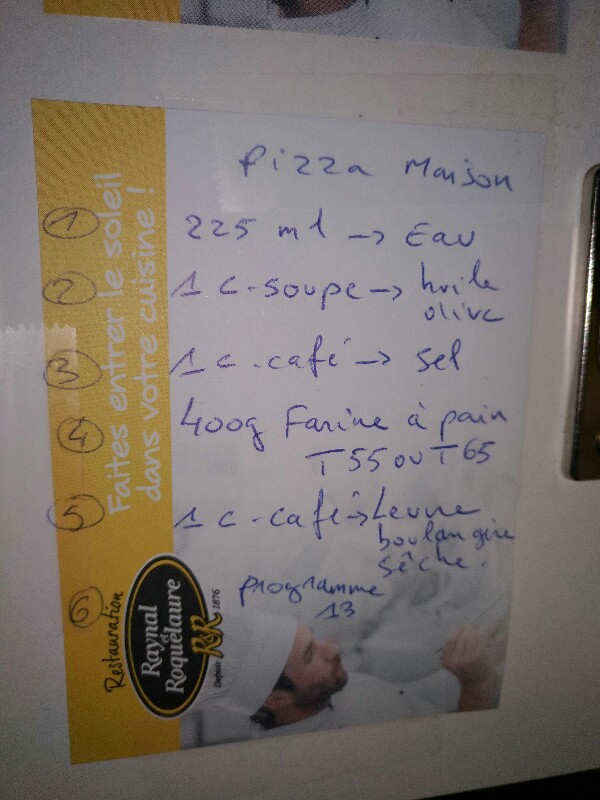 Pizza Maison
① 225 ml → Eau
② 1 c-soupe → huile
olive
③ 1 c.café → sel
④ 400g Farine à pain
T55 ou T65
⑤ 1 c-café → Levure
boulangère
sèche.
⑥ programme
13
Faites entrer le soleil
dans votre cuisine !
Restauration
Raynal
et
Roquelaure
R&R
Depuis 1876